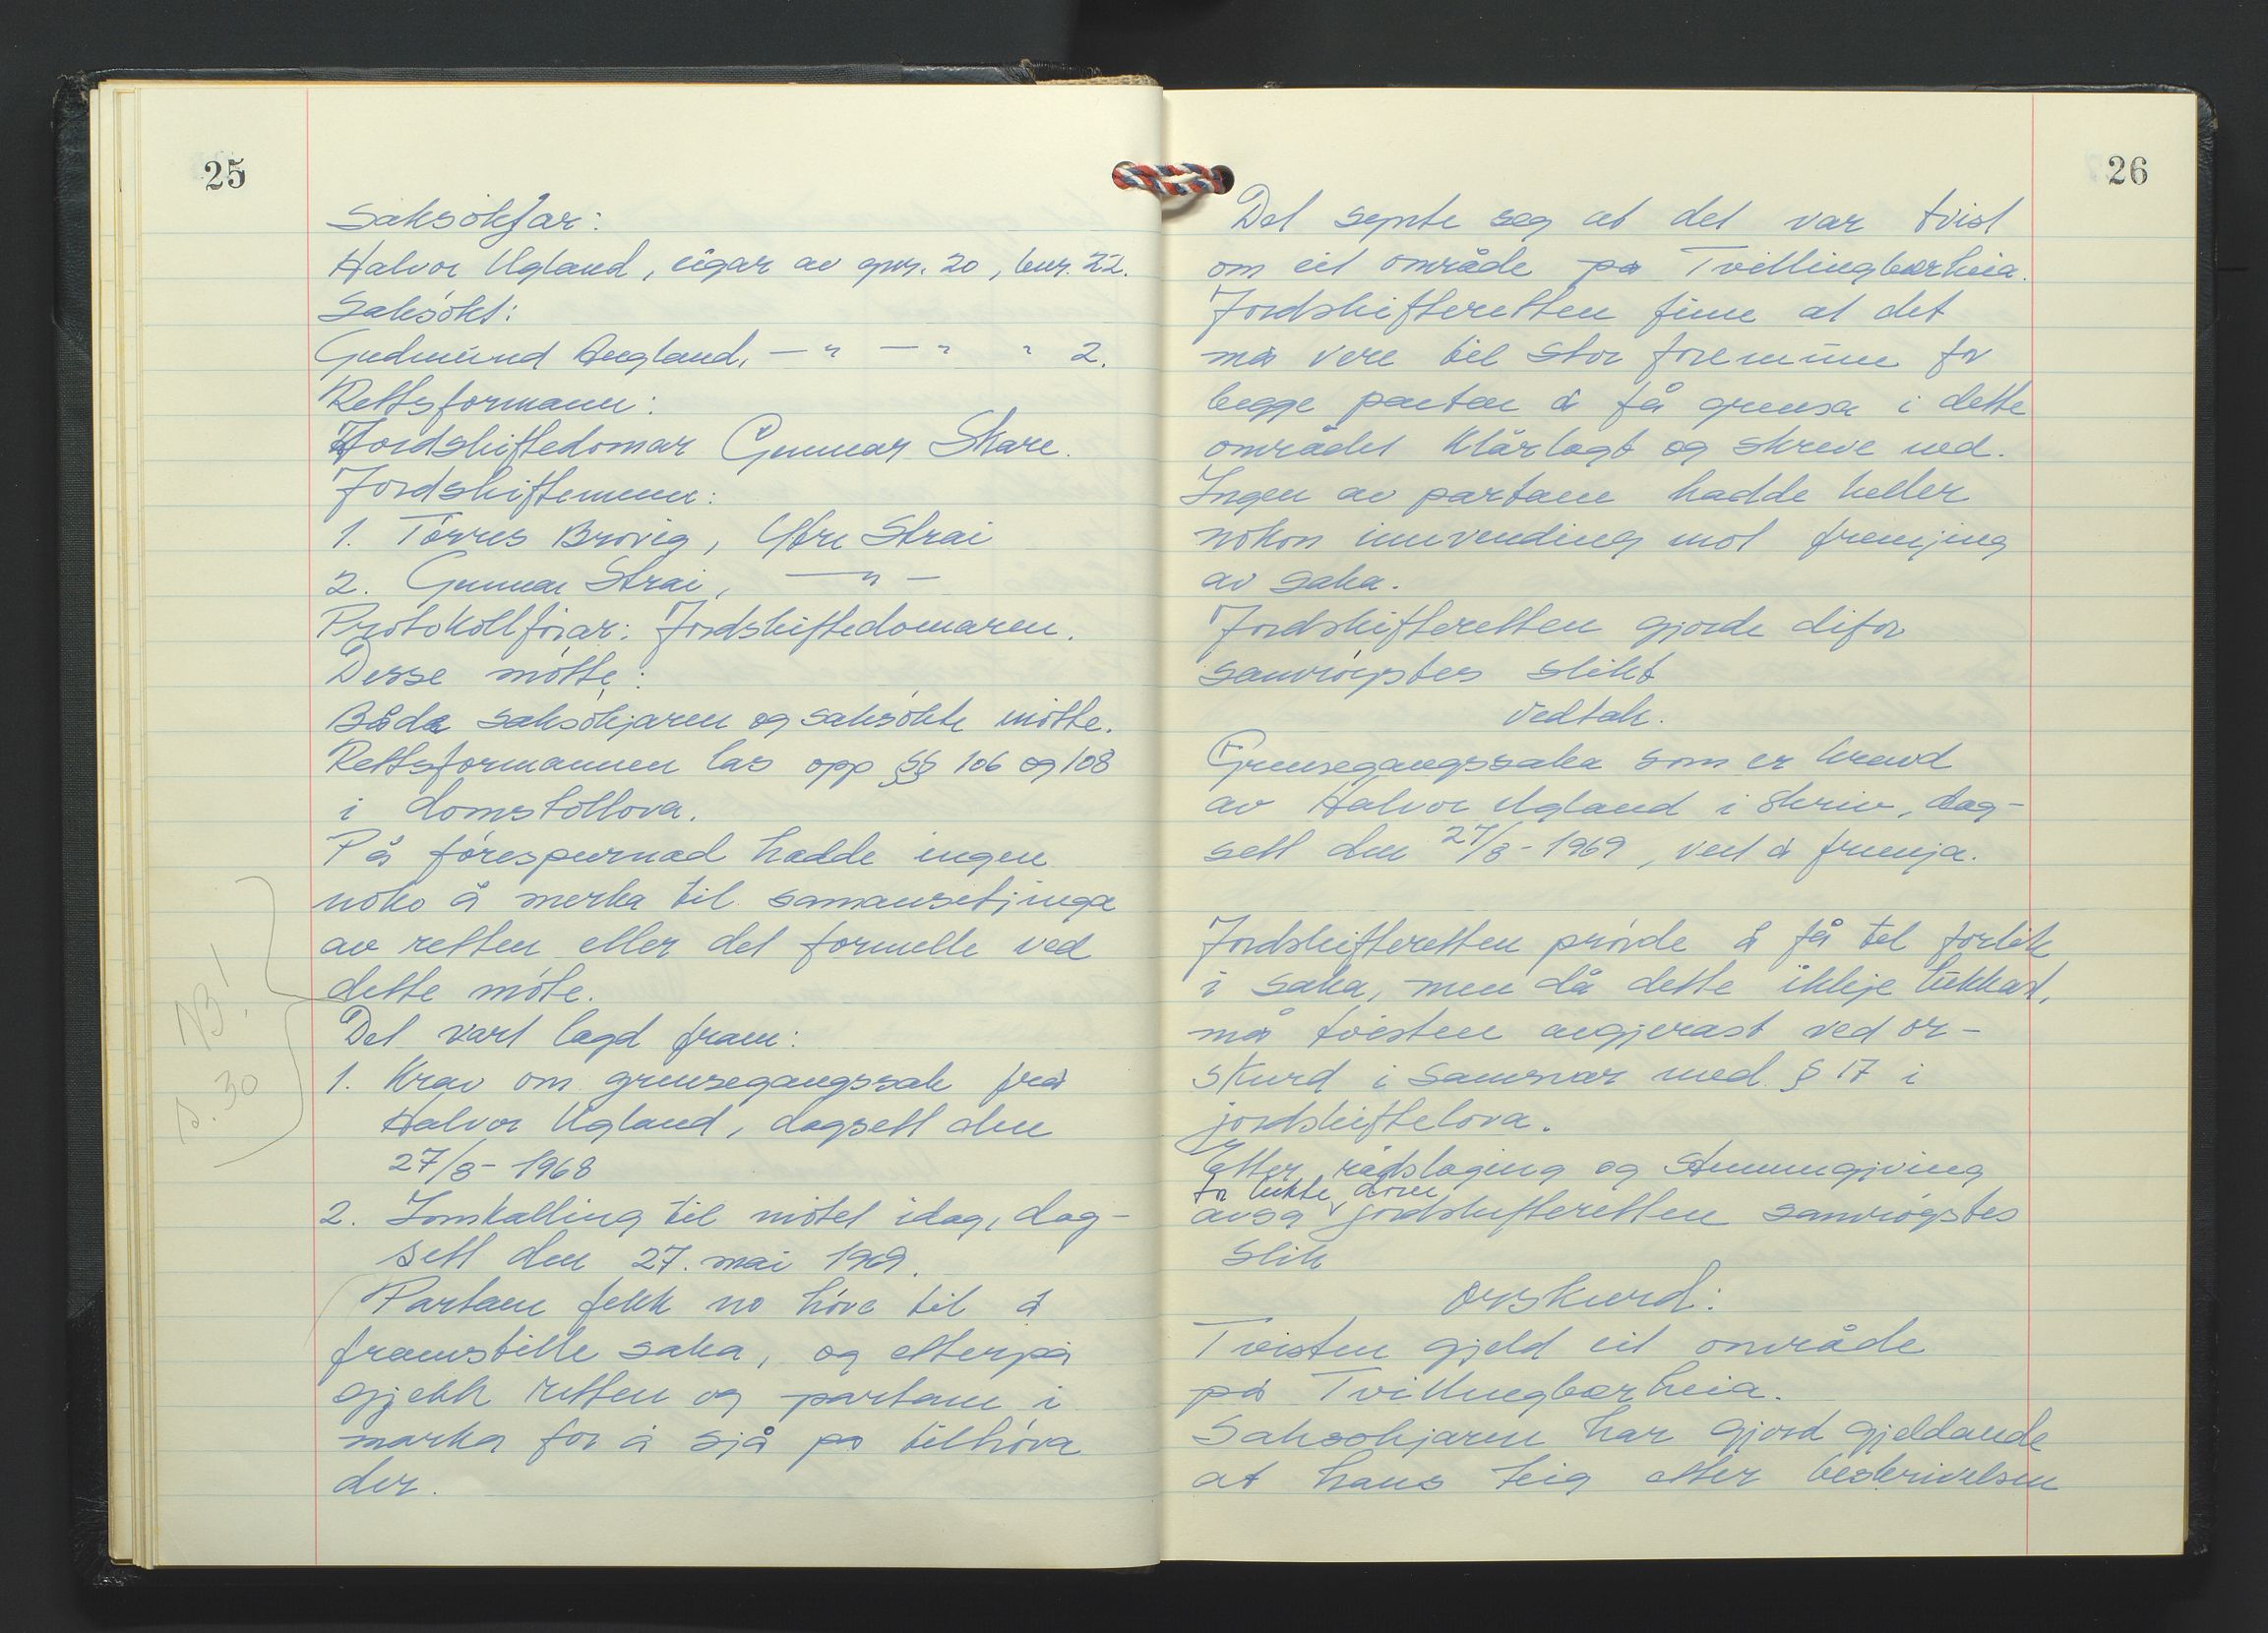 25
Saksökjar:
Halvor Ugland, eigar av gnr. 20, bnr. 22.
Saksökt:
Gudmund Augland, — " — " " 2.
Rettsformann:
Jordskiftedomar Gunnar Skare.
Jordskiftemenn:
1. Tørres Brovig, Øvre Strai
2. Gunnar Strai, — " —
Protokollförar: Jordskiftedomaren.
Desse mötte:
Både saksökjaren og saksökte mötte.
Rettsformannen las opp §§ 106 og 108
i domstollova.
På förespurnad hadde ingen
noko å merka til samansetjinga
av retten eller det formelle ved
dette möte.
Det vart lagd fram:
1. Krav om grensegangssak frå
Halvor Ugland, dagsett den
27/8 - 1968
2. Innkalling til mötet idag, dag-
sett den 27. mai 1969.
Partane fekk no höve til å
framstille saka, og etterpå
gjekk retten og partane i
marka for å sjå på tilhöva
der.
NB!
s. 30
26
Det synte seg at det var tvist
om eit område på Tvillingbærheia.
Jordskifteretten finn at det
må vere til stor föremun for
begge partar å få grensa i dette
området klårlagt og skreve ned.
Ingen av partane hadde heller
nokon innvending mot fremjing
av saka.
Jordskifteretten gjorde difor
samröystes slikt
vedtak.
Grensegangssaka som er kravd
av Halvor Ugland i skriv, dag-
sett den 27/8 - 1969, vert å fremja.
Jordskifteretten prövde å få til forlik
i saka, men då dette ikkje lukkast,
må tvisten avgjerast ved or-
skurd i samsvar med § 17 i
jordskiftelova.
Etter rådslaging og stemmegjeving
for lukte dörer
avsa jordskifteretten samröystes
slik
orskurd:
Tvisten gjeld eit område
på Tvillingbærheia.
Saksökjaren har gjord gjeldande
at hans teig etter beskrivelsen